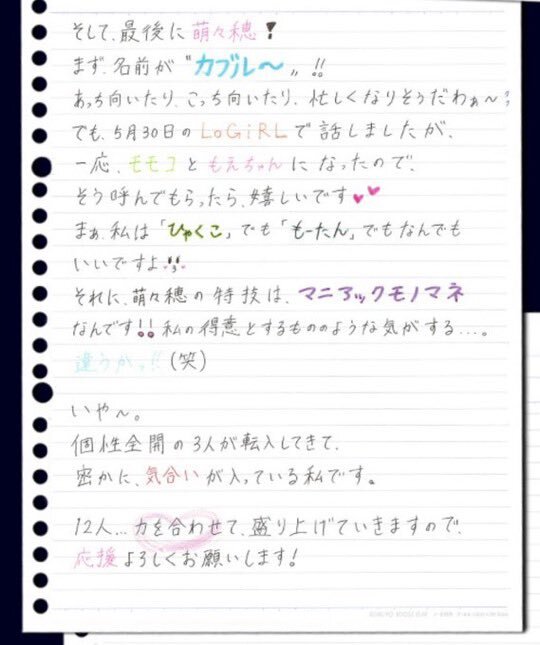 そして、最後に萌々穂！
まず、名前が〝カブル〜〟!!
あっち向いたり、こっち向いたり、忙しくなりそうだわぁ〜
でも、5月30日のLoGiRLで話しましたが、
一応、モモコともえちゃんになったので、
そう呼んでもらったら、嬉しいです
まぁ、私は「ひゃくこ」でも「もーたん」でもなんでも
いいですよ
それに、萌々穂の特技は、マニアックモノマネ
なんです!! 私の得意とするもののような気がする…。
違うかっ!!(笑)
いや〜。
個性全開の3人が転入してきて、
密かに、気合いが入っている私です。
12人…力を合わせて、盛り上げていきますので、
応援よろしくお願いします！